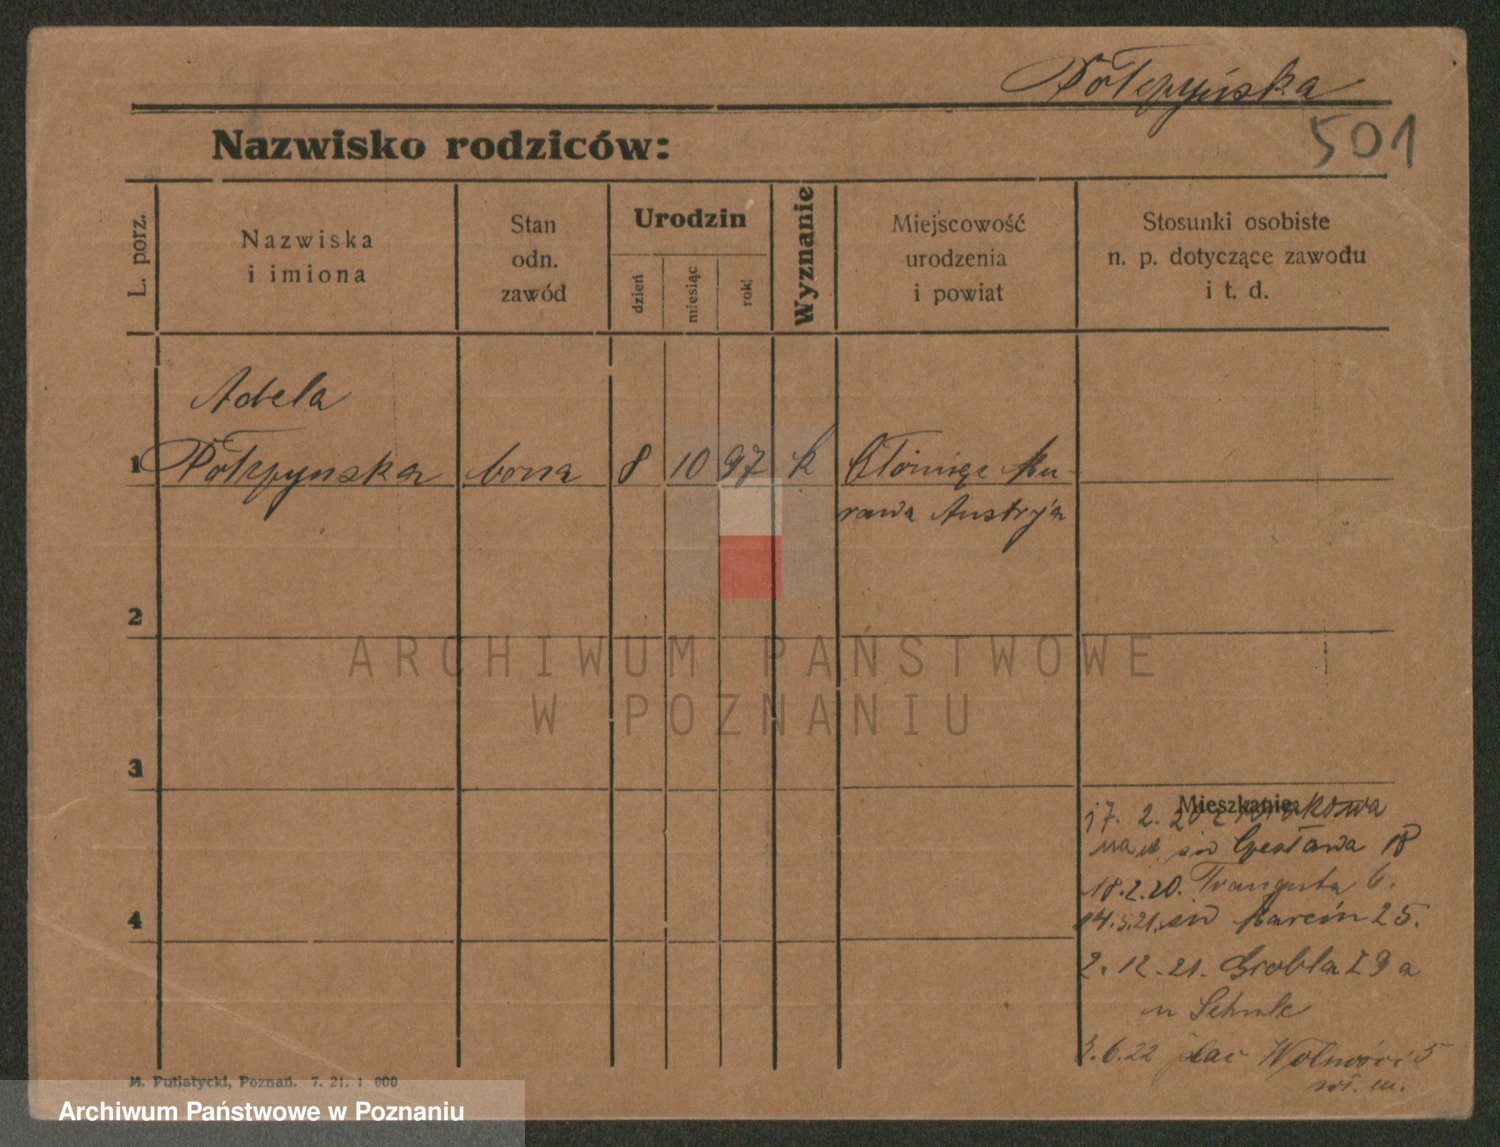 Połczyńska
501
Nazwisko rodziców:
L. porz.
Nazwiska
i imiona
Stan
odn.
zawód
Urodzin
dzień
miesiąc
rok
Wyznanie
Miejscowość
urodzenia
i powiat
Stosunki osobiste
n. p. dotyczące zawodu
i t. d.
Adela
1 Połczynska bona 8 10 97 k Ołomięc Mu-
rawa Austrja
2
3
4
Mieszkanie:
17. 2. 20
św Czesława 18
18.2.20. Traugutta 6.
14.5.21. św Marcin 25.
2. 12. 21. Grobla I 9 a
u
3.6.22 plac Wolności 5
M. Putiatycki, Poznań. 7. 21. 1 000
ARCHIWUM PAŃSTWOWE
W POZNANIU
Archiwum Państwowe w Poznaniu